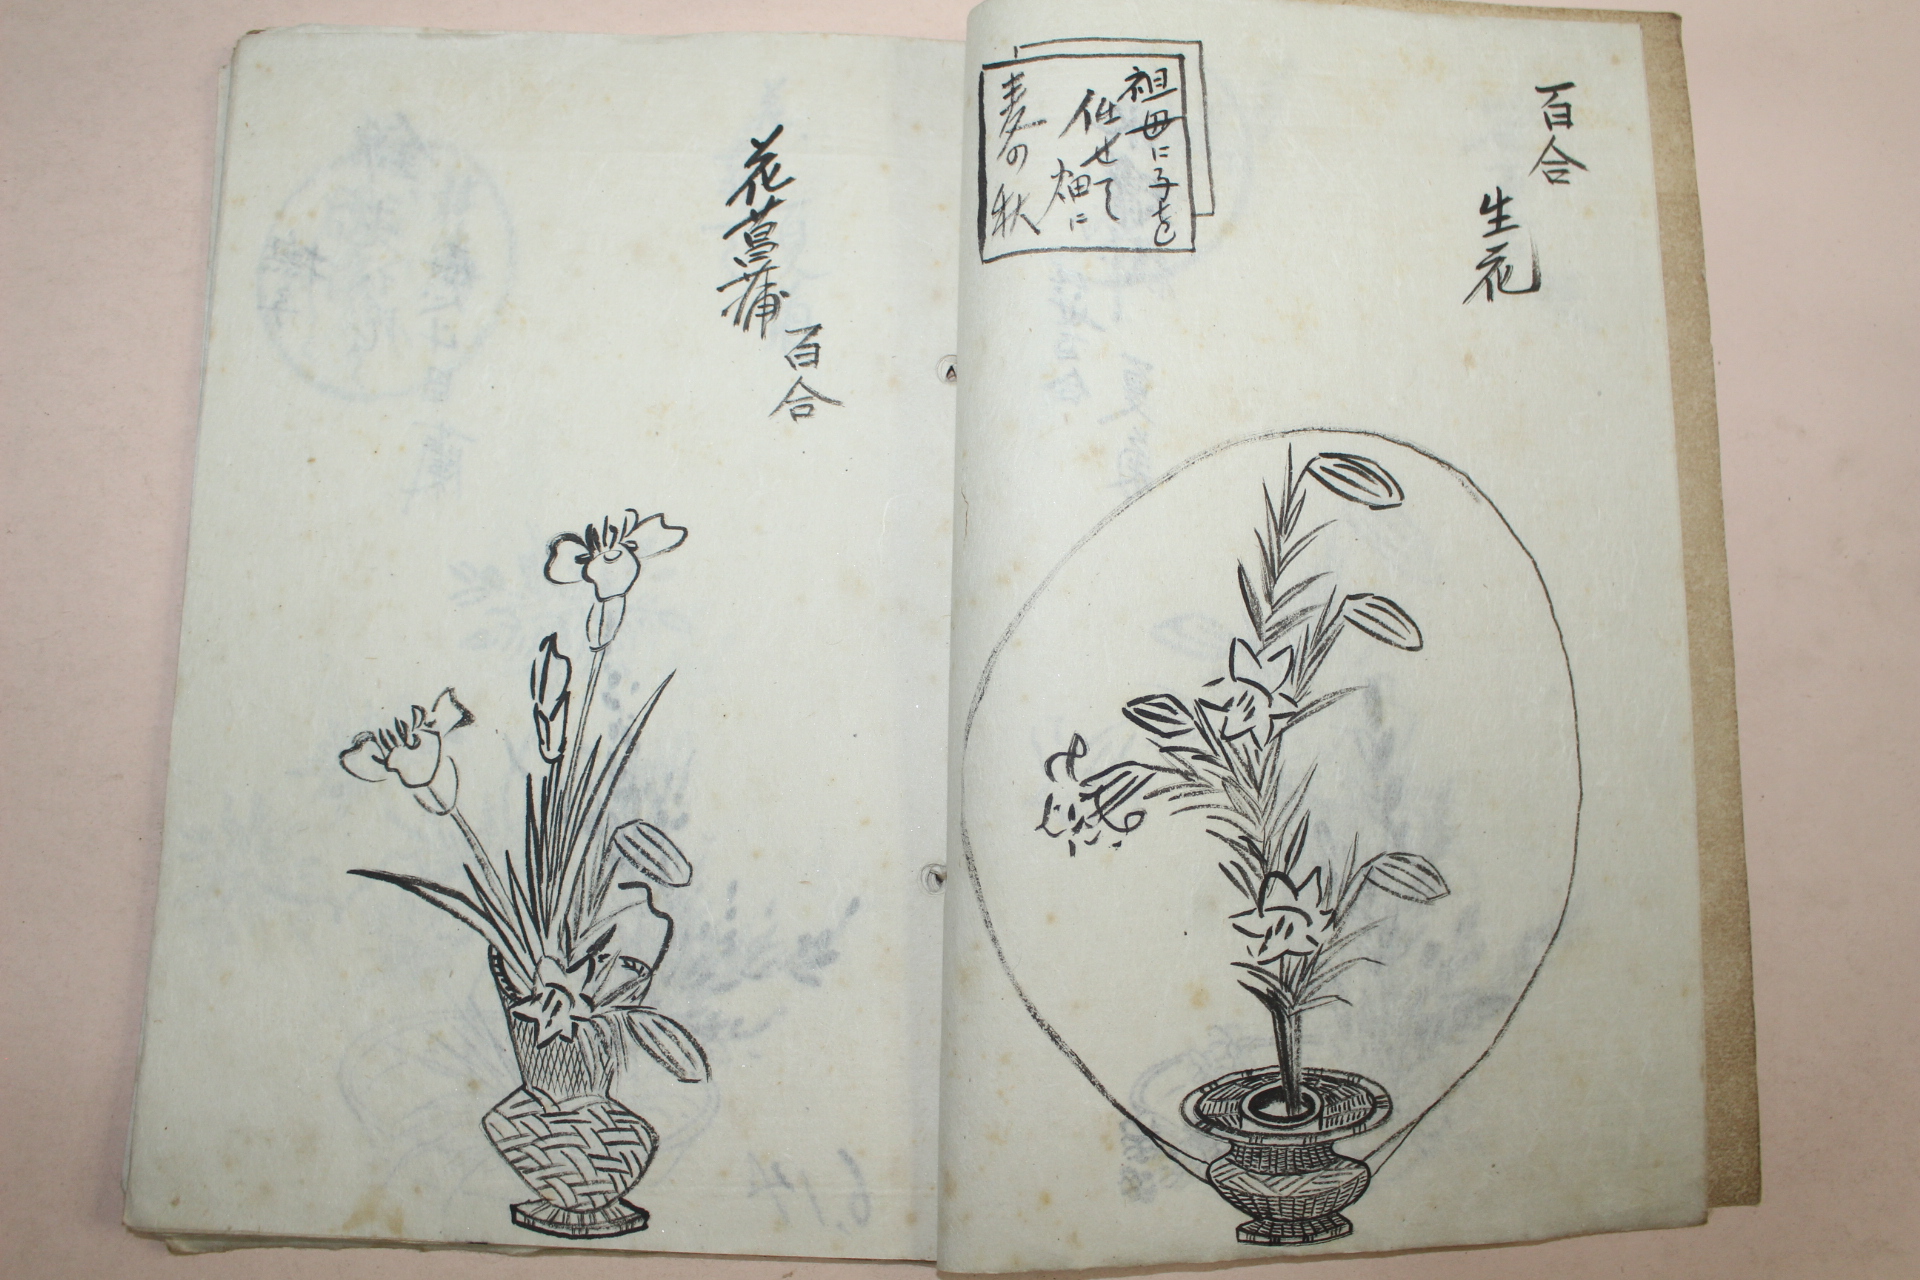 百合
生花
祖母に子を
任せて畑に
麦の秋
花菖蒲
百合